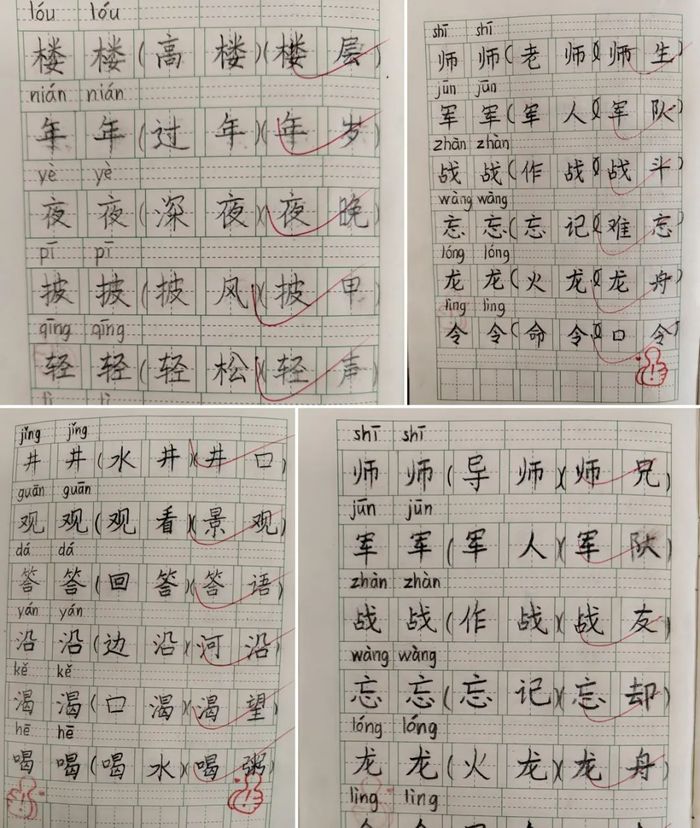 lóu lóu
楼 楼(高 楼)(楼 层)
nián nián
年 年(过 年)(年 岁)
yè yè
夜 夜(深 夜)(夜 晚)
pī pī
披 披(披 风)(披 甲)
qīng qīng
轻 轻(轻 松)(轻 声)
shī shī
师 师(老 师)(师 生)
jūn jūn
军 军(军 人)(军 队)
zhàn zhàn
战 战(作 战)(战 斗)
wàng wàng
忘 忘(忘 记)(难 忘)
lóng lóng
龙 龙(火 龙)(龙 舟)
lìng lìng
令 令(命 令)(口 令)
jǐng jǐng
井 井(水 井)(井 口)
guān guān
观 观(观 看)(景 观)
dá dá
答 答(回 答)(答 语)
yán yán
沿 沿(边 沿)(河 沿)
kě kě
渴 渴(口 渴)(渴 望)
hē hē
喝 喝(喝 水)(喝 粥)
shī shī
师 师(导 师)(师 兄)
jūn jūn
军 军(军 人)(军 队)
zhàn zhàn
战 战(作 战)(战 友)
wàng wàng
忘 忘(忘 记)(忘 却)
lóng lóng
龙 龙(火 龙)(龙 舟)
lìng lìng